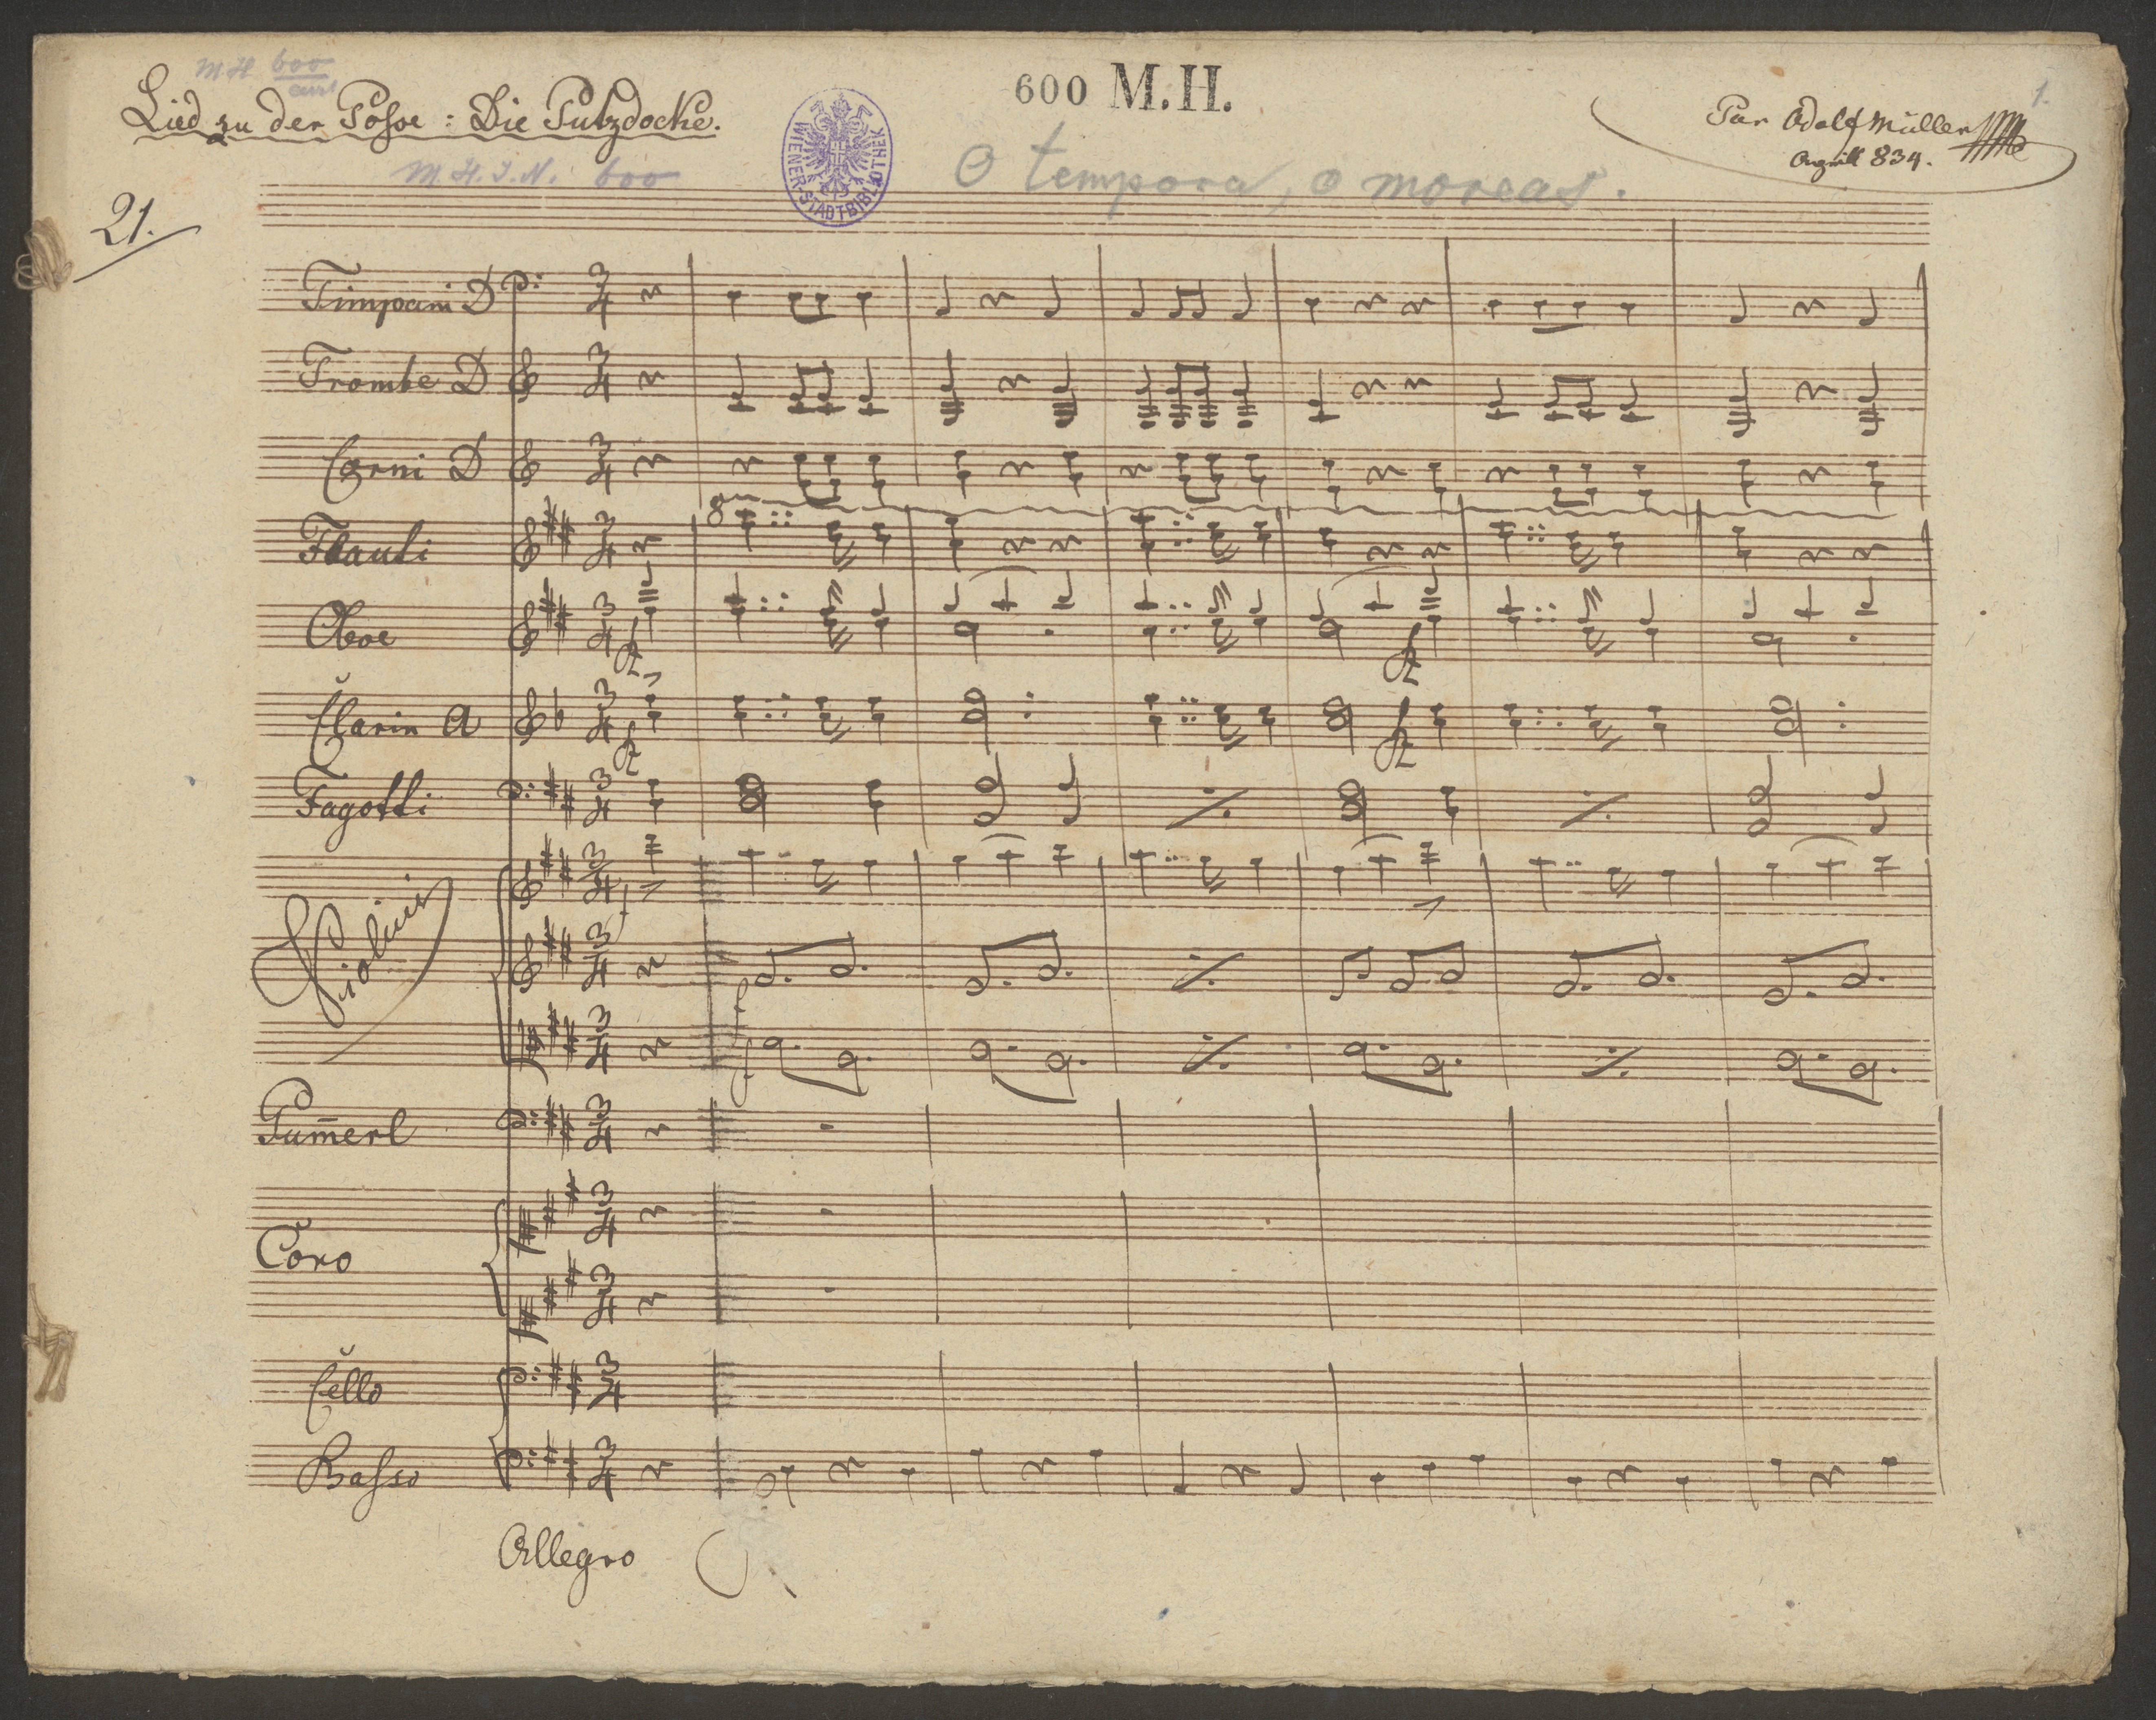 M.H. 600
Lied zu der Posse: Die Putzdocke.
600 M.H.
1.
Par Adolf Müller
834.
M.H.I.N. 600
WIENER-STADTBIBLIOTHEK
O tempora, o moreas.
21.
Timpani D
Trombe D
Corni D
8
Flauti
Oboe
Clarin A
Fagotti
Violini
Pum̄erl
Coro
Cello
Basso
Allegro